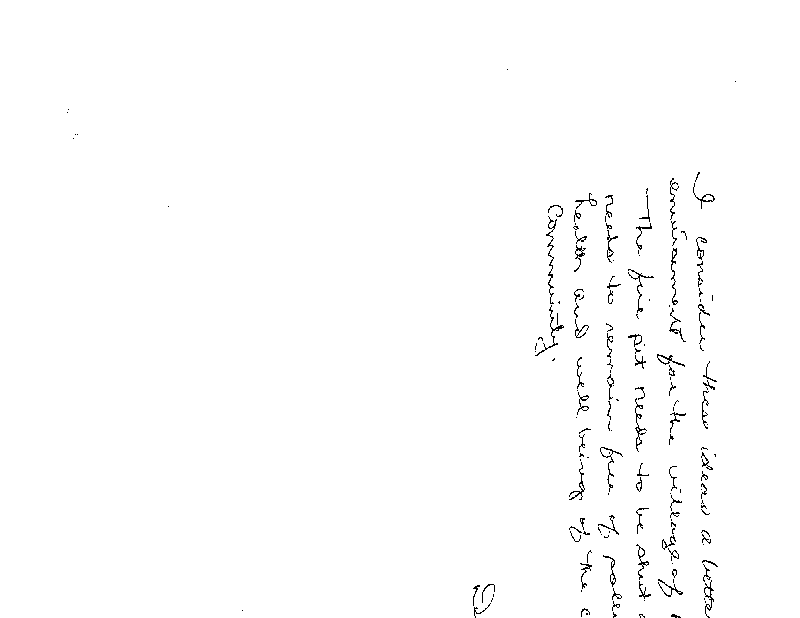 I consider these ideas a better
environment for the village of
The fire pit needs to be shut
needs to remain free of
health and well being of the
Community.